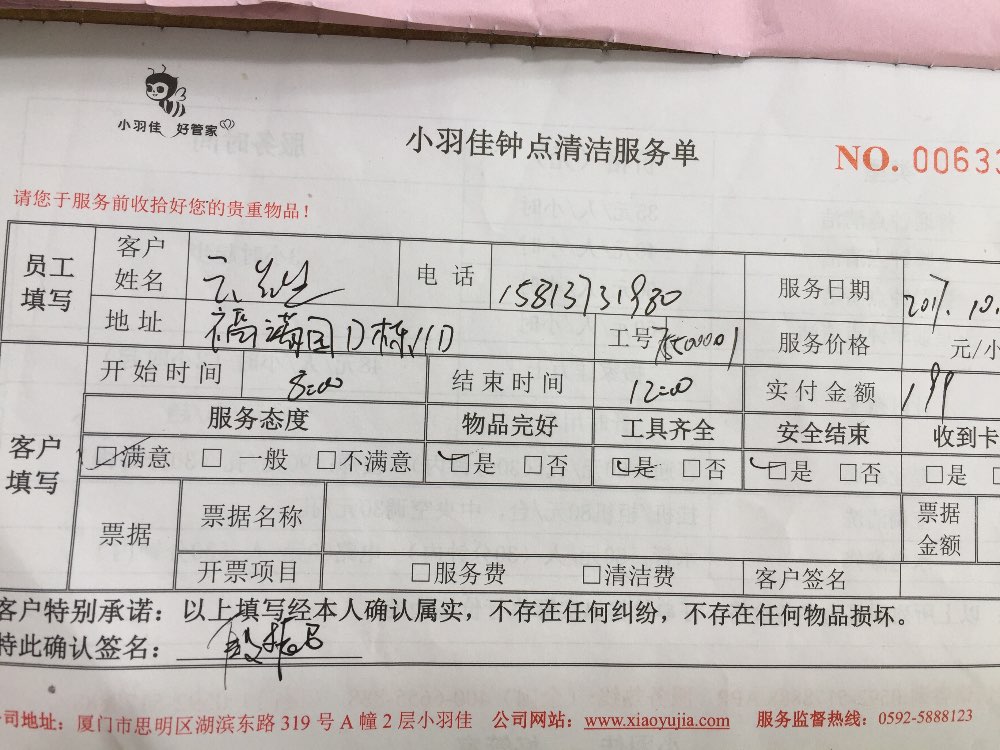 小羽佳 好管家
小羽佳钟点清洁服务单
NO. 00633
请您于服务前收拾好您的贵重物品！
员工填写 客户姓名 电话 15813731980 服务日期 2017.10.
地址 福满园D栋11D 工号 服务价格 元/小
客户填写 开始时间 8:00 结束时间 12:00 实付金额 199
服务态度 物品完好 工具齐全 安全结束 收到卡
□满意 □一般 □不满意 □是 □否 □是 □否 □是 □否 □是
票据 票据名称 票据金额
开票项目 □服务费 □清洁费 客户签名
客户特别承诺：以上填写经本人确认属实，不存在任何纠纷，不存在任何物品损坏。
特此确认签名：
公司地址：厦门市思明区湖滨东路 319 号 A 幢 2 层小羽佳 公司网站：www.xiaoyujia.com 服务监督热线：0592-5888123